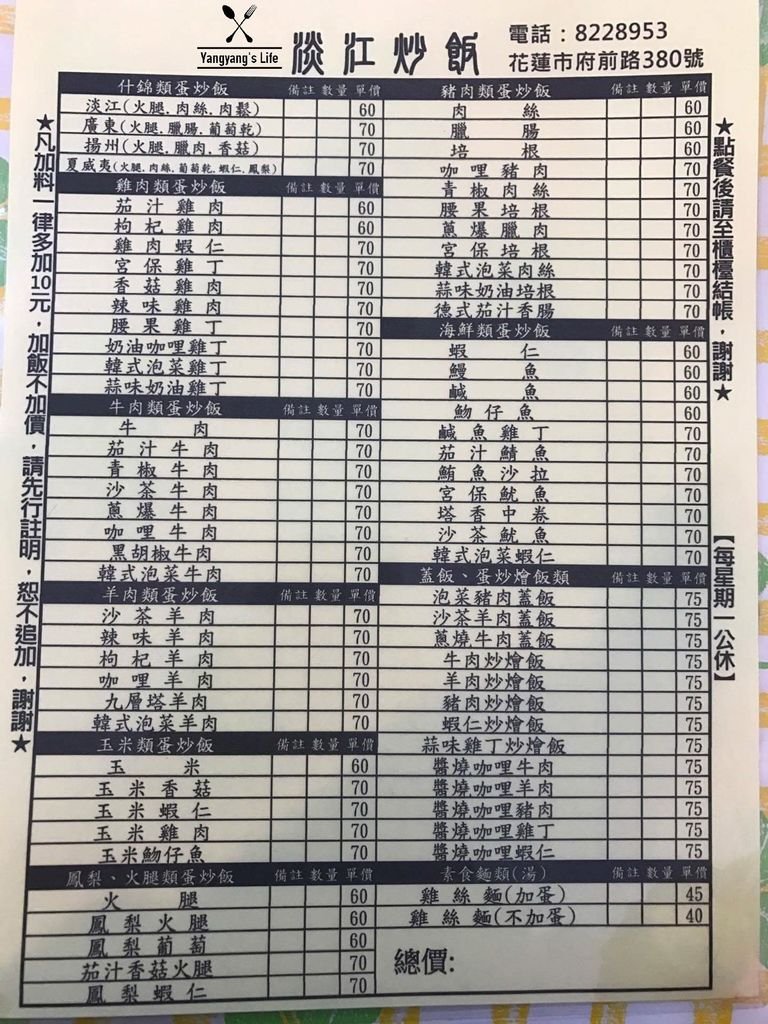 Yangyang's Life
淡江炒飯
電話：8228953
花蓮市府前路380號
★凡加料一律多加10元，加飯不加價，請先行註明，恕不追加，謝謝★
什錦類蛋炒飯 備註 數量 單價
淡江(火腿.肉絲.肉鬆) 60
廣東(火腿.臘腸.葡萄乾) 70
揚州(火腿.臘肉.香菇) 60
夏威夷(火腿.肉絲.葡萄乾.蝦仁.鳳梨) 70
雞肉類蛋炒飯 備註 數量 單價
茄汁雞肉 60
枸杞雞肉 60
雞肉蝦仁 70
宮保雞丁 70
香菇雞肉 70
辣味雞肉 70
腰果雞丁 70
奶油咖哩雞丁 70
韓式泡菜雞丁 70
蒜味奶油雞丁 70
牛肉類蛋炒飯 備註 數量 單價
牛肉 70
茄汁牛肉 70
青椒牛肉 70
沙茶牛肉 70
蔥爆牛肉 70
咖哩牛肉 70
黑胡椒牛肉 70
韓式泡菜牛肉 70
羊肉類蛋炒飯 備註 數量 單價
沙茶羊肉 70
辣味羊肉 70
枸杞羊肉 70
咖哩羊肉 70
九層塔羊肉 70
韓式泡菜羊肉 70
玉米類蛋炒飯 備註 數量 單價
玉米 60
玉米香菇 70
玉米蝦仁 70
玉米雞肉 70
玉米魩仔魚 70
鳳梨、火腿類蛋炒飯 備註 數量 單價
火腿 60
鳳梨火腿 60
鳳梨葡萄 60
茄汁香菇火腿 70
鳳梨蝦仁 70
豬肉類蛋炒飯 備註 數量 單價
肉絲 60
臘腸 60
培根 60
咖哩豬肉 70
青椒肉絲 70
腰果培根 70
蔥爆臘肉 70
宮保培根 70
韓式泡菜肉絲 70
蒜味奶油培根 70
德式茄汁香腸 70
海鮮類蛋炒飯 備註 數量 單價
蝦仁 60
鰻魚 60
鹹魚 60
魩仔魚 60
鹹魚雞丁 70
茄汁鯖魚 70
鮪魚沙拉 70
宮保魷魚 70
塔香中卷 70
沙茶魷魚 70
韓式泡菜蝦仁 70
蓋飯、蛋炒燴飯類 備註 數量 單價
泡菜豬肉蓋飯 75
沙茶羊肉蓋飯 75
蔥燒牛肉蓋飯 75
牛肉炒燴飯 75
羊肉炒燴飯 75
豬肉炒燴飯 75
蝦仁炒燴飯 75
蒜味雞丁炒燴飯 75
醬燒咖哩牛肉 75
醬燒咖哩羊肉 75
醬燒咖哩豬肉 75
醬燒咖哩雞丁 75
醬燒咖哩蝦仁 75
素食麵類(湯) 備註 數量 單價
雞絲麵(加蛋) 45
雞絲麵(不加蛋) 40
總價:
★點餐後請至櫃檯結帳，謝謝★
【每星期一公休】